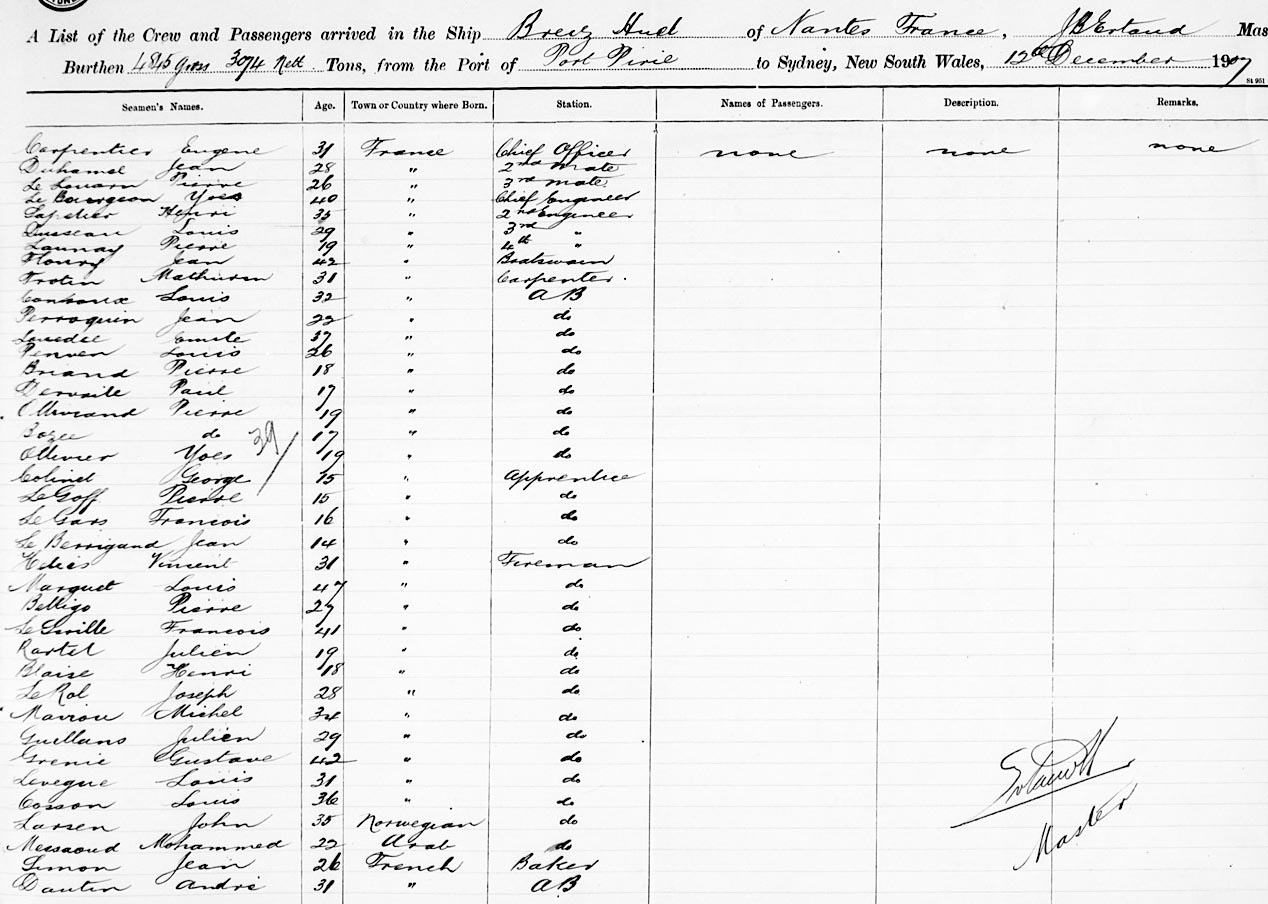 A List of the Crew and Passengers arrived in the Ship Breiz Huel of Nantes France, Mas
Burthen 4815 Gross 3074 Nett Tons, from the Port of Port Pirie to Sydney, New South Wales, 12th December 1907
St 951
Seamen's Names. Age. Town or Country where Born. Station. Names of Passengers. Description. Remarks.
Carpentier Eugene 31 France Chief Officer none none none
Duhamel Jean 28 " 2nd Mate
Le Louarn Pierre 26 " 3rd Mate
Le Bourgeon Yves 40 " Chief Engineer
Henri 35 " 2nd Engineer
Louis 29 " 3rd "
Launay Pierre 19 " 4th "
Floury Jean 42 " Boatswain
Frotin Mathurin 31 " Carpenter.
Louis 32 " AB
Perroquin Jean 22 " do
Emile 37 " do
Penven Louis 26 " do
Briand Pierre 18 " do
Paul 17 " do
Pierre 19 " do
Bozec do 17 " do
39/
Ollivier Yves 19 " do
Colinet George 15 " Apprentice
Le Goff Pierre 15 " do
Le Gars Francois 16 " do
Le Berrigand Jean 14 " do
Helies Vincent 31 " Fireman
Marquet Louis 47 " do
Belligo Pierre 27 " do
Francois 41 " do
Rartel Julien 19 " do
Blaise Henri 18 " do
Le Rol Joseph 28 " do
Marrou Michel 34 " do
Julien 29 " do
Grenie Gustave 42 " do
Levegue Louis 31 " do
Cosson Louis 36 " do
Larsen John 35 Norwegian do
Messaoud Mohammed 22 Arab do
Simon Jean 26 French Baker
Dautin André 31 " AB
Master